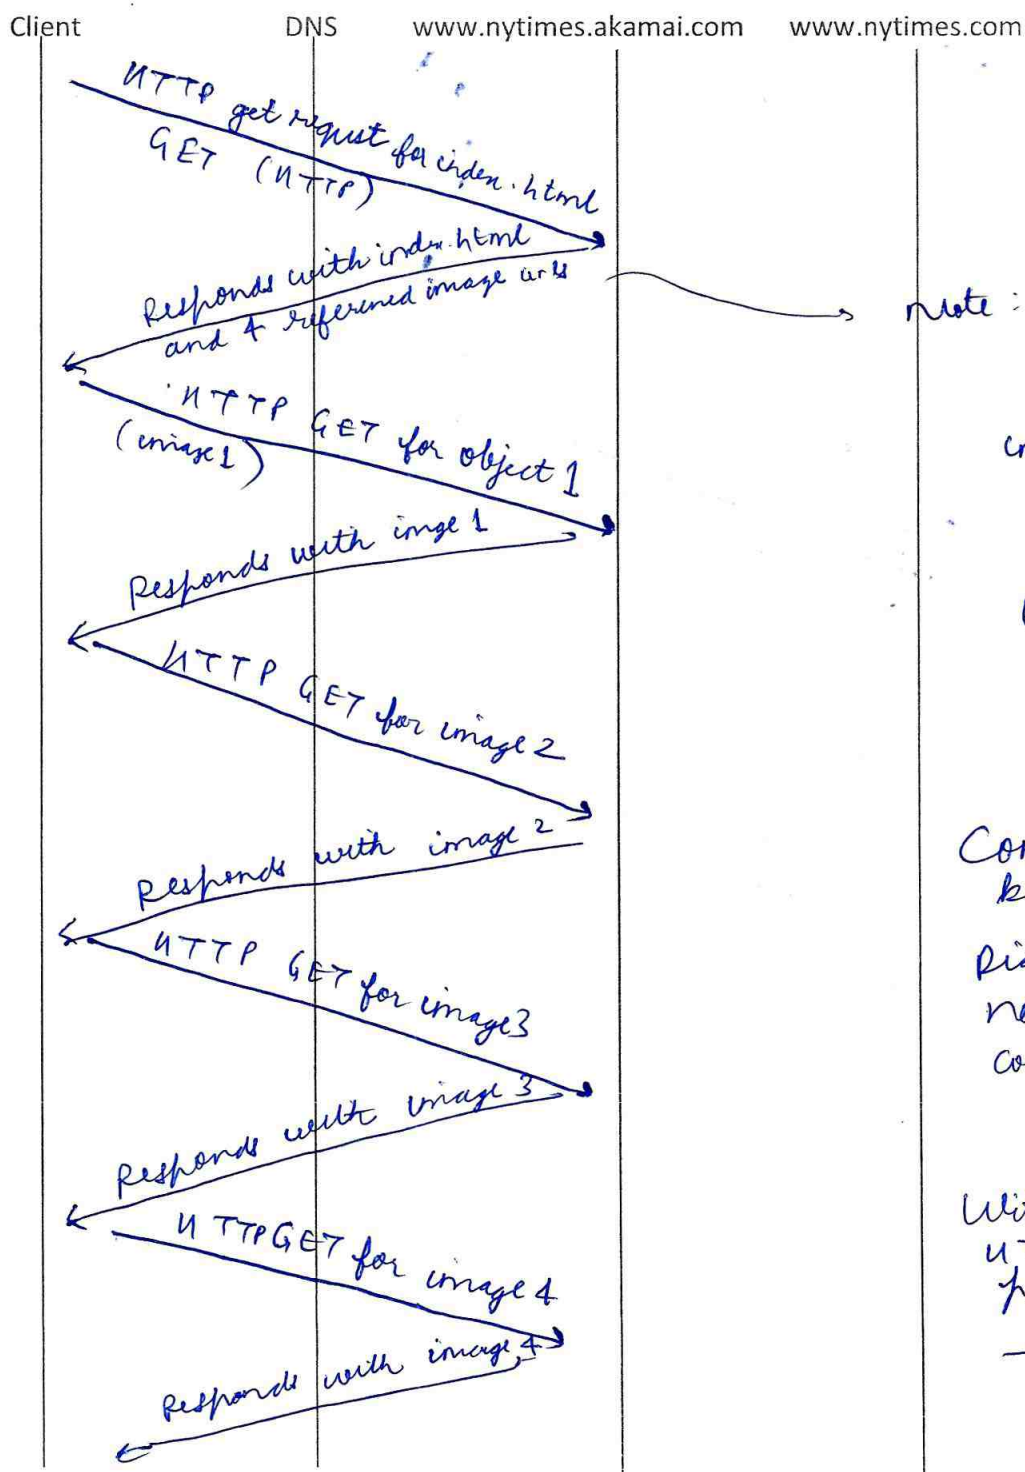 Client DNS www.nytimes.akamai.com www.nytimes.com
HTTP get request for index.html
GET (HTTP)
Responds with index.html
and 4 referenced image urls
Note :
HTTP GET for object 1
(image 1)
Responds with imge 1
HTTP GET for image 2
Responds with image 2
HTTP GET for image 3
Responds with image 3
HTTP GET for image 4
Responds with image 4